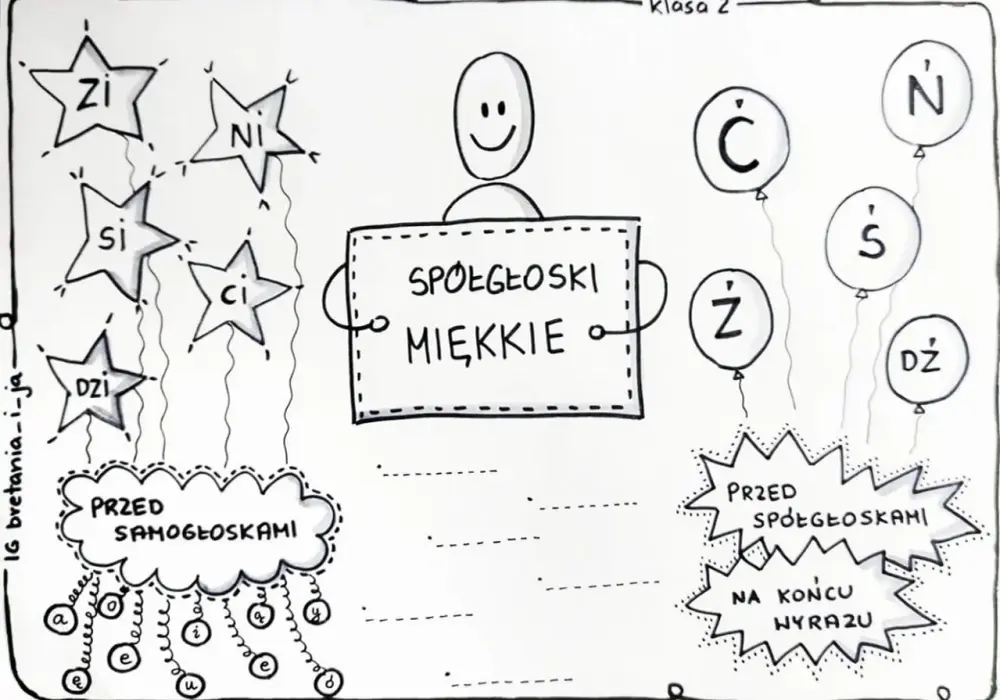 klasa 2
Zi
Ni
Si
Ci
DZi
SPÓŁGŁOSKI
MIĘKKIE
Ć
Ń
Ś
Ź
DŹ
PRZED
SAMOGŁOSKAMI
a
o
i
ą
y
ę
e
u
e
ó
PRZED
SPÓŁGŁOSKAMI
NA KOŃCU
WYRAZU
IG bretania_i_ja